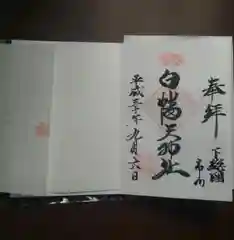 奉拝
下総国
市川
白幡天神社
平成三十年九月六日